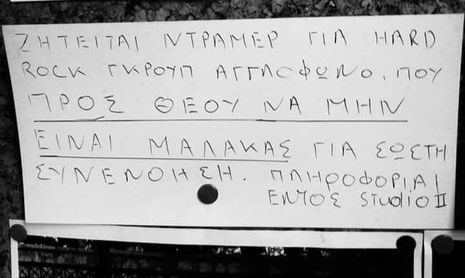 ΖΗΤΕΙΤΑΙ ΝΤΡΑΜΕΡ ΓΙΑ HARD
ROCK ΓΚΡΟΥΠ ΑΓΓΛΟΦΩΝΟ, ΠΟΥ
ΠΡΟΣ ΘΕΟΥ ΝΑ ΜΗΝ
ΕΙΝΑΙ ΜΑΛΑΚΑΣ ΓΙΑ ΣΩΣΤΗ
ΣΥΝΕΝΟΗΣΗ. ΠΛΗΡΟΦΟΡΙΑΙ
ΕΝΤΟΣ STUDIO II